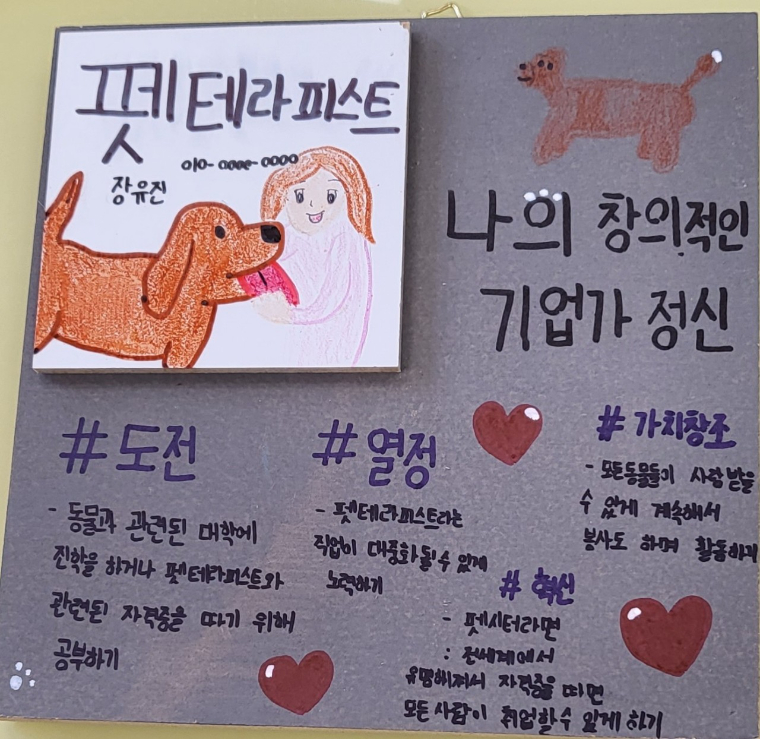 펫테라피스트
010-0000-0000
장유진
나의 창의적인
기업가 정신
#도전
- 동물과 관련된 대학에
진학을 하거나 펫테라피스트와
관련된 자격증을 따기 위해
공부하기
#열정
- 펫테라피스트라는
직업이 대중화 될 수 있게
노력하기
#가치창조
- 모든동물들이 사랑받을
수 있게 계속해서
봉사도 하며 활동하기
#혁신
- 펫시터라면
: 전세계에서
유명해져서 자격증을 따면
모든 사람이 취업할 수 있게 하기